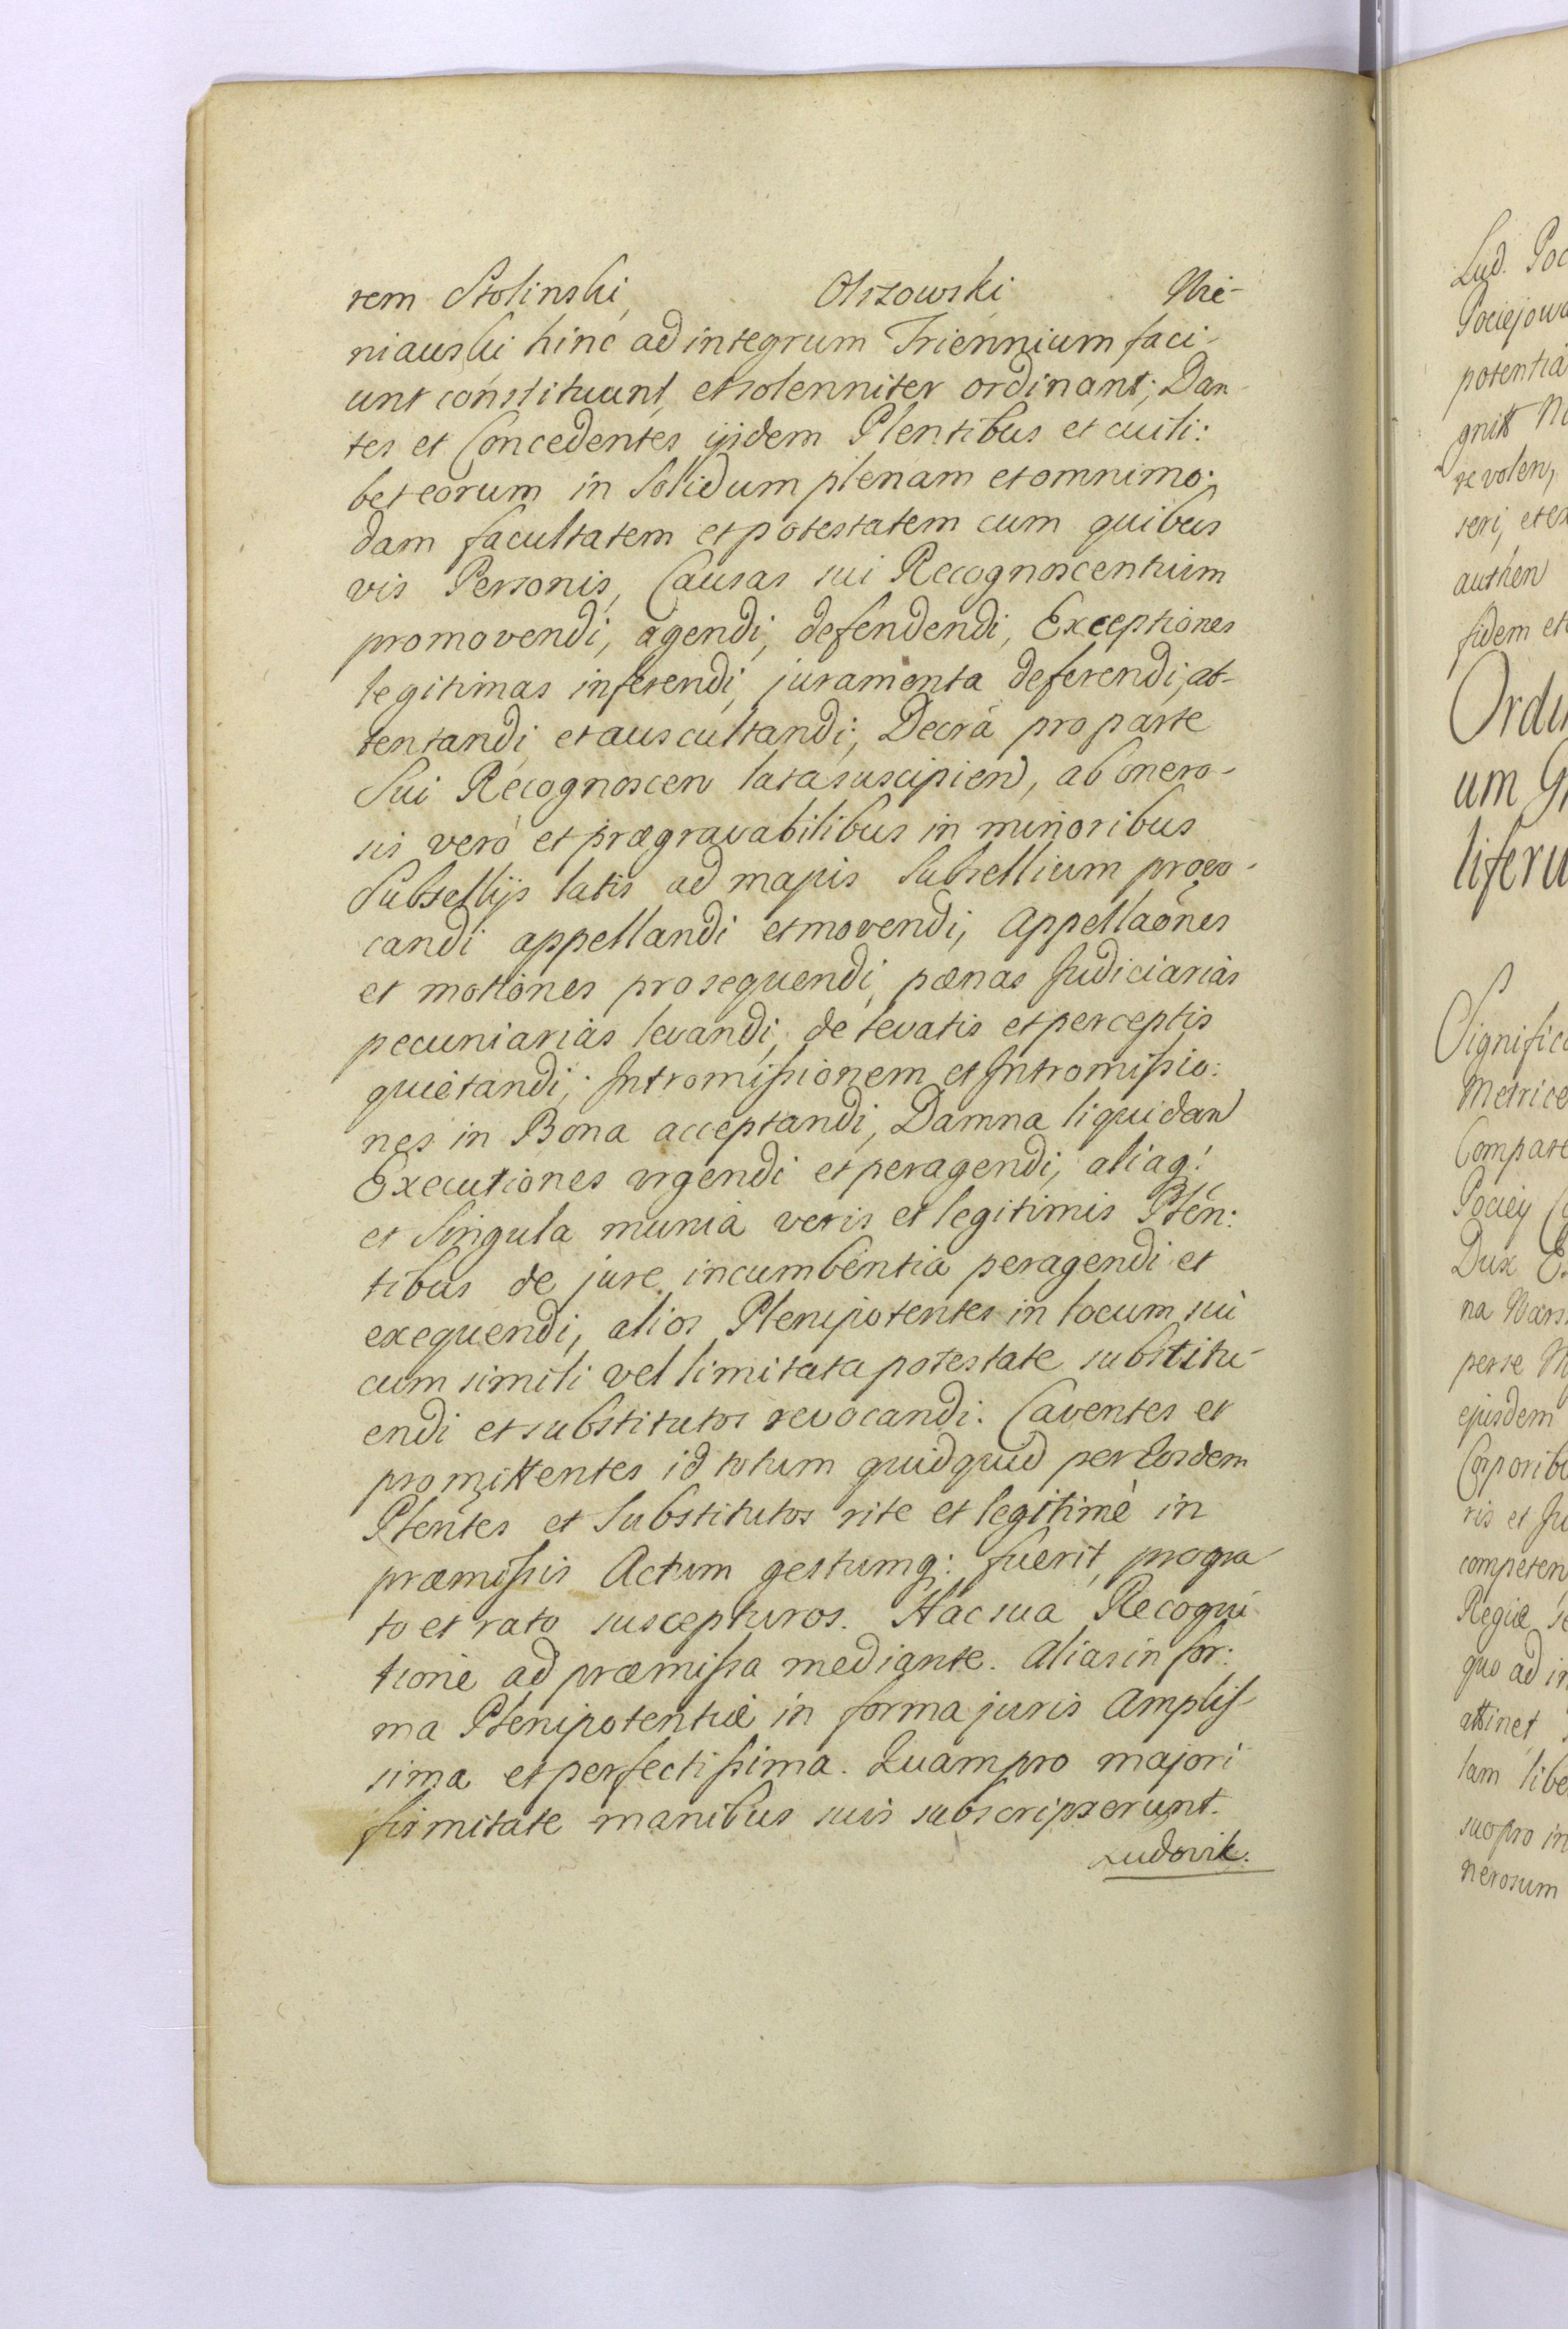 rem Stolinski, Olszowski Nie-
niawski hinc ad integrum Triennium faci-
unt constituunt, et solenniter ordinant; Dan-
tes et Concedentes ijsdem Plentibus et cuili:
bet eorum in Solidum plenam et omnimo:
dam facultatem et potestatem cum quibus
vis Personis, Causas sui Recognoscentium
promovendi, agendi, defendendi, Exceptiones
legitimas inferendi, juramenta deferendi, at-
tentandi et auscultandi; Decra pro parte
Sui Recognoscen lata suscipien, ab onero-
sis vero et prægravabilibus in minoribus
Subsellijs latis ad majus Subsellium provo-
candi appellandi et movendi, Appellaones
et motiones prosequendi, pænas Judiciarias
pecuniarias levandi, de levatis et perceptis
quietandi; Intromissionem et Intromissio:
nes in Bona acceptandi, Damna liquidan
Executiones urgendi et peragendi, aliaq:
et Singula munia veris et legitimis Plen:
tibus de jure incumbentia peragendi et
exequendi, alios Plenipotentes in locum sui
cum simili vel limitata potestate substitu-
endi et substitutos revocandi. Caventes et
promittentes id totum quidquid per Eosdem
Plentes et Substitutos rite et legitimè in
præmissis Actum gestumq: fuerit, pro gra
to et rato suscepturos. Hac sua Recogni
tione ad præmissa mediante. Alias in for:
ma Plenipotentiæ in forma juris Amplis-
sima et perfectissima. Quam pro majori
firmitate manibus suis subscripserunt.
Ludovik.
Lud. Poc
Pociejowa
potentia
re volen,
seri, et ex
authen
fidem et
Ordi
um G
liferu
Signific
Metrice
Compare
Pociey
Dux
na Wars
per se
ejusdem
Corporib
ris et Ju
competen
Regiæ se
quo ad in
attinet
lam libe
suo pro in
nerosum